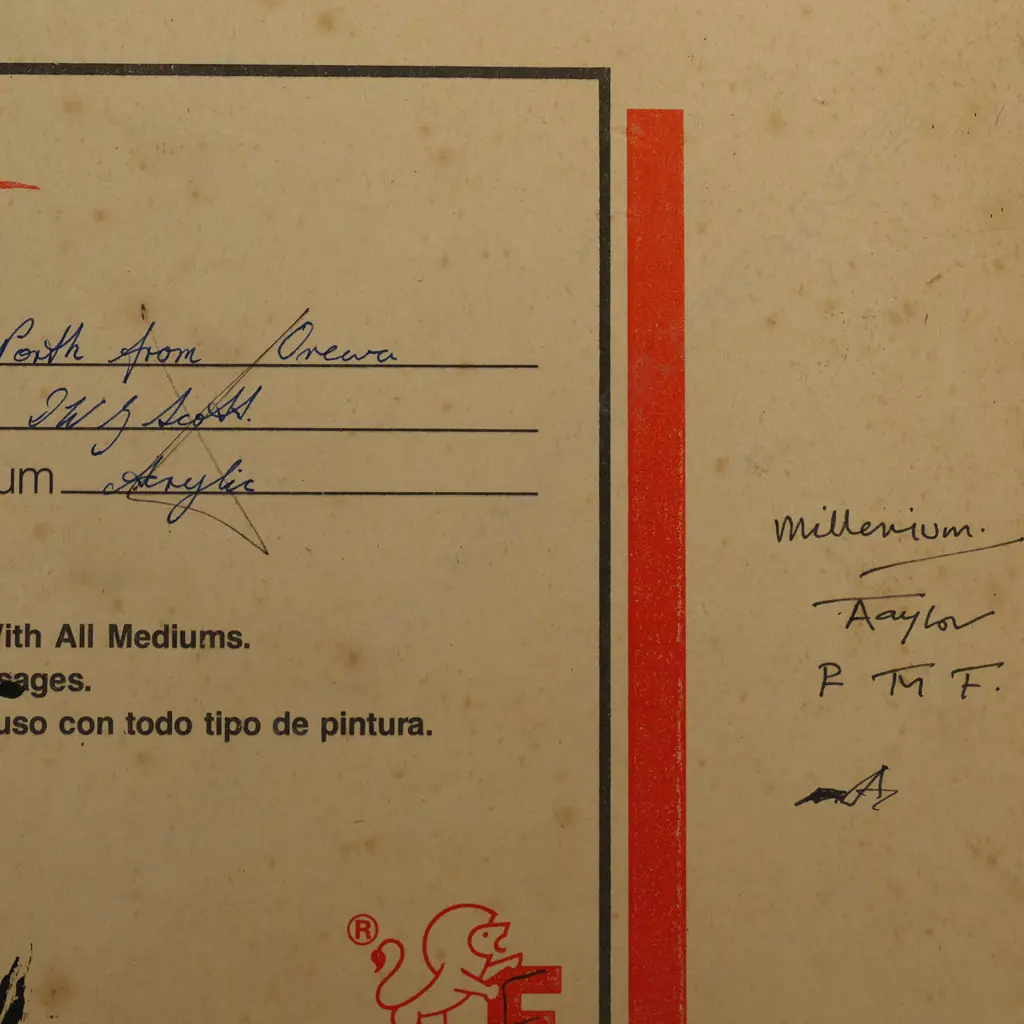 North from Orewa
D W G Scott.
um Acrylic
With All Mediums.
sages.
uso con todo tipo de pintura.
Millenium.
Aaylor
R M F.
A
®
F